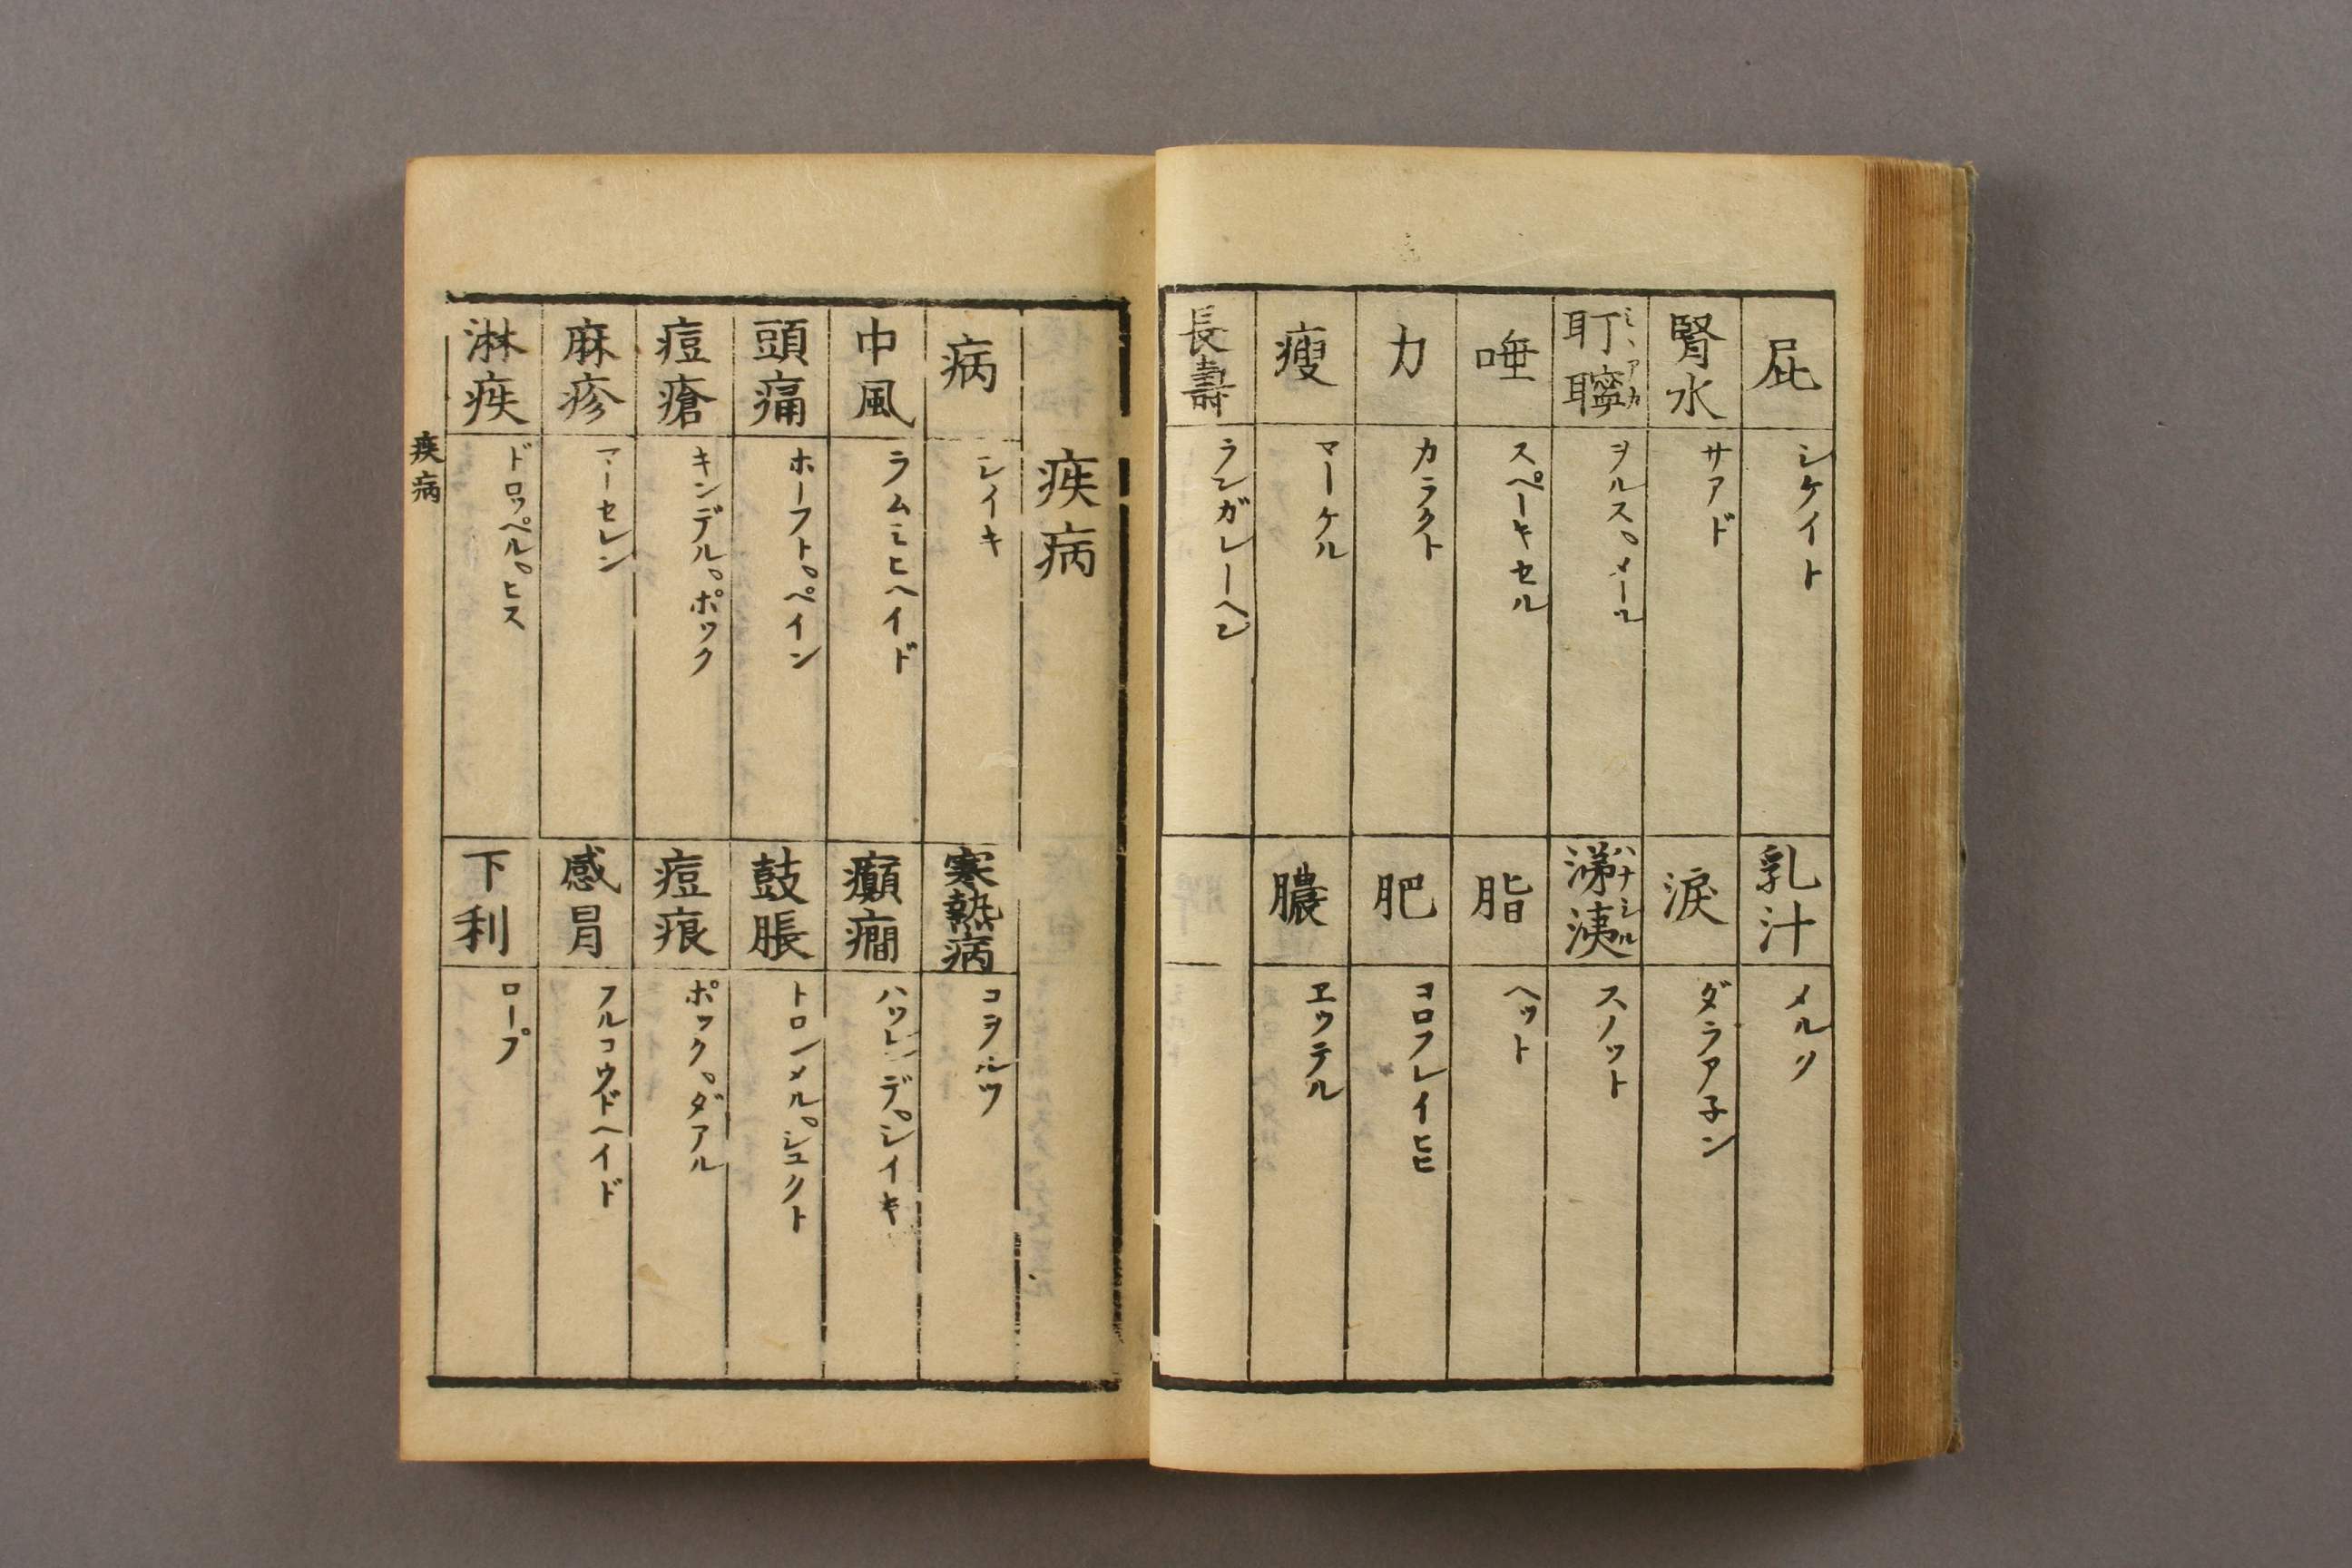 屁
シケイト
腎水
サアド
耵聹
ミヽアカ
ヲルス。メール
唾
スペーキセル
力
カラクト
瘦
マーケル
長壽
ランガレーヘン
乳汁
メルリ
淚
ダラア子ン
涕洟
ハナシル
スノット
脂
ヘット
肥
コロフレイヒヒ
膿
ヱッテル
疾病
病
シイキ
中風
ラムミヒヘイド
頭痛
ホーフト。ペイン
痘瘡
キンデル。ポック
麻疹
マーセレン
淋疾
ドロッペル。ヒス
寒熱病
コヲルツ
癲癇
ハツレンデ。シイキ
鼓脹
トロンメル。シュクト
痘痕
ポック。ダアル
感冒
フルコウドヘイド
下利
ロープ
疾病